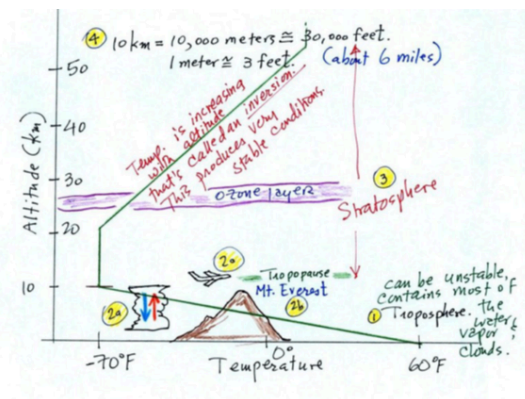 4 10 km = 10,000 meters ≅ 30,000 feet.
1 meter ≅ 3 feet. (about 6 miles)
50
40
30
20
10
Altitude (km)
Temp. is increasing
with altitude
that's called an inversion.
This produces very
stable conditions.
ozone layer
3
Stratosphere
2a
Tropopause
Mt. Everest
2a
2b
can be unstable,
contains most of
1 Troposphere. the
water
vapor &
clouds.
-70°F
0°
60°F
Temperature